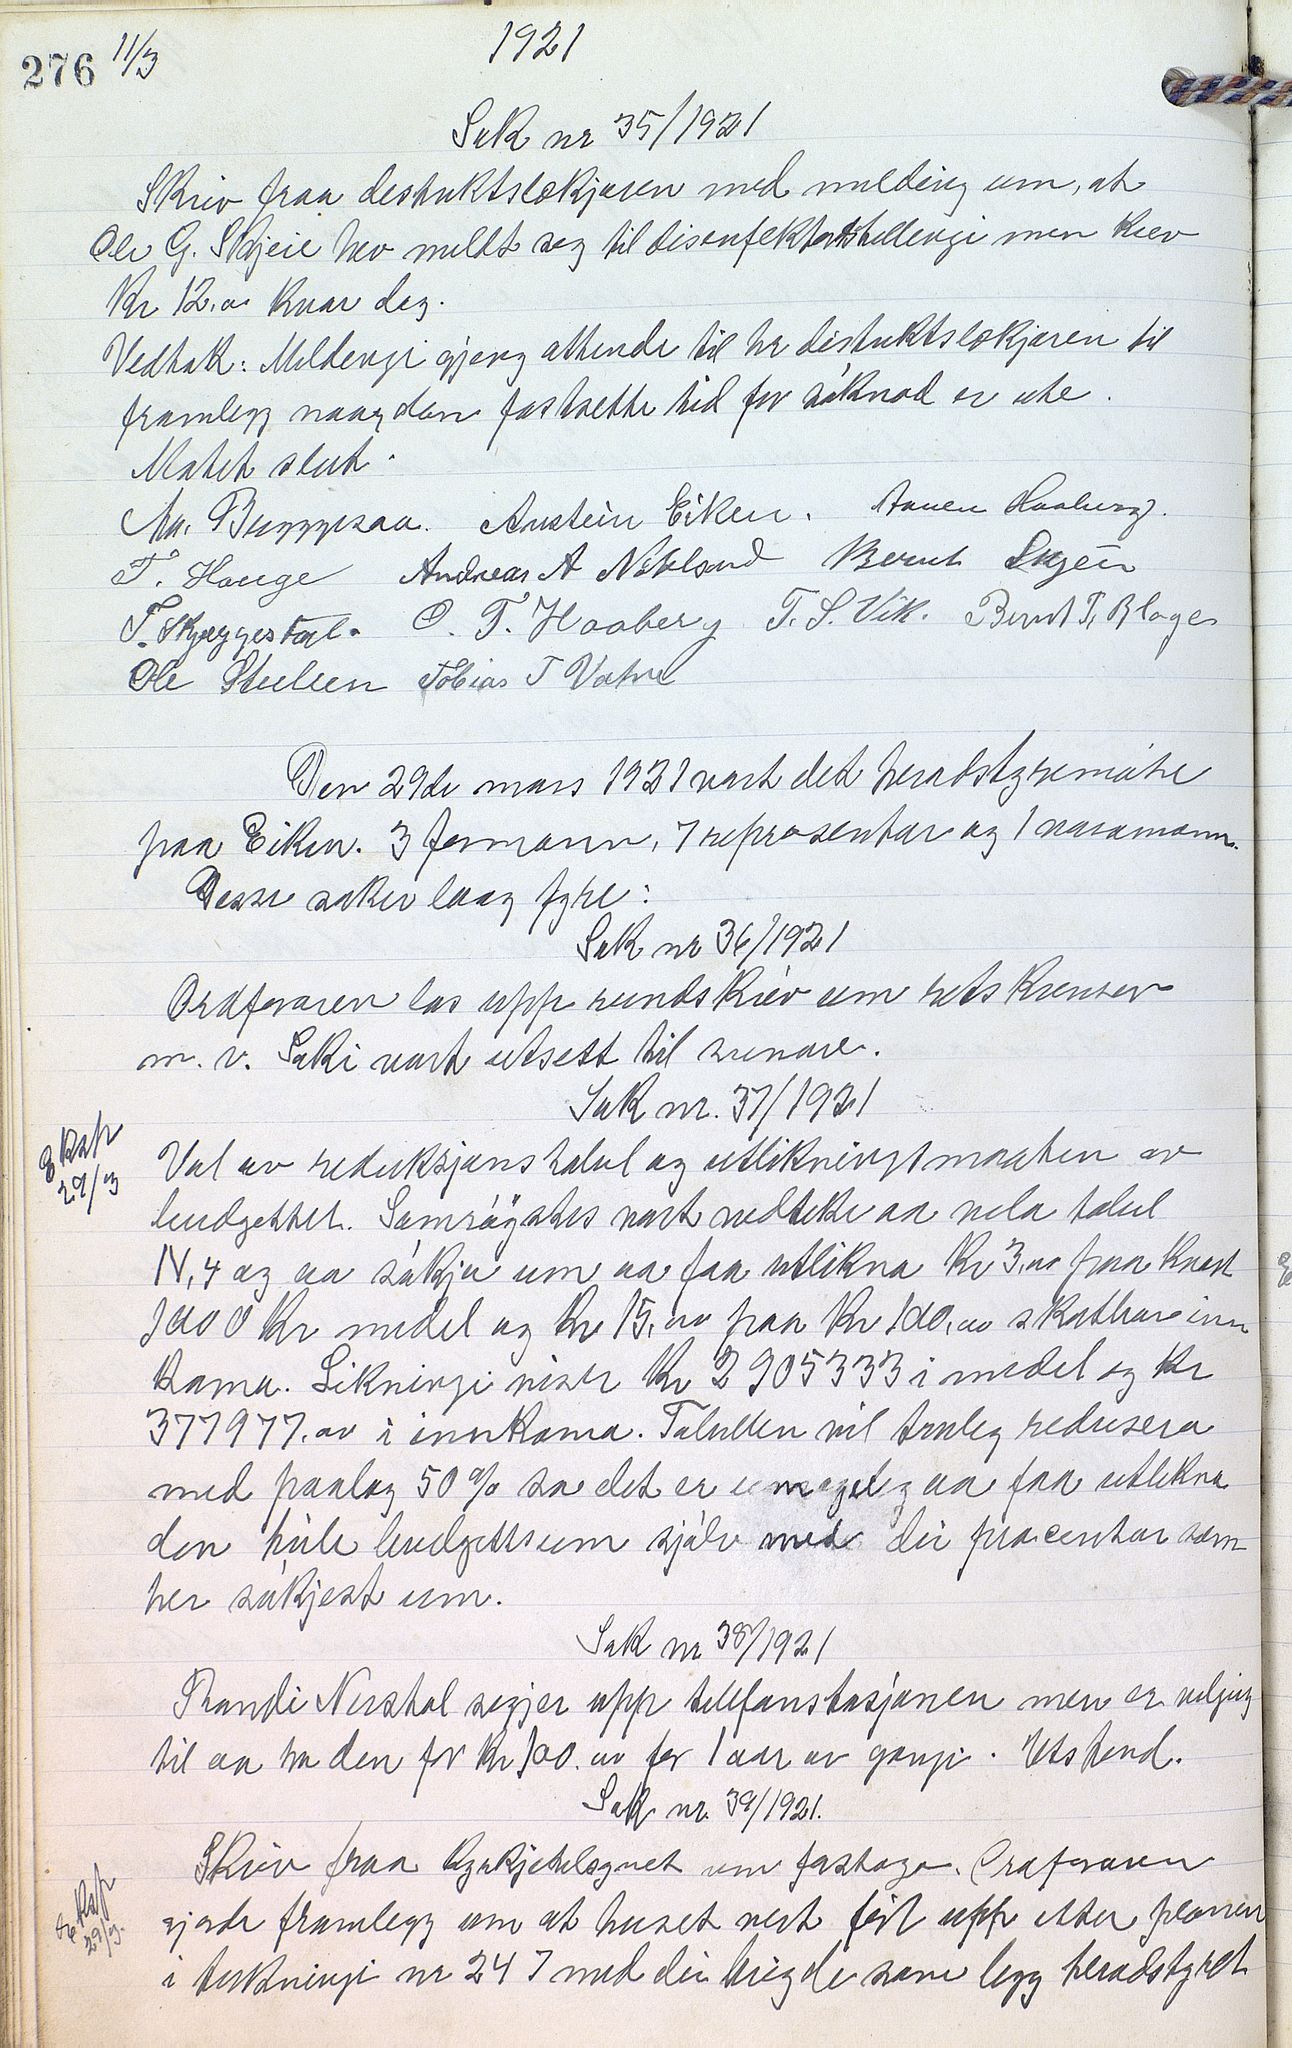 276 11/3
1921
Sak nr 35/1921
Skriv fraa destriktslækjaren med melding um, at
Ole G. Skjeie hev meldt seg til disenfektørstellingi men krev
Kr 12,00 kvar dag.
Vedtak: Meldingi gjeng attende til hr distriktslækjaren til
framlegg naar den fastsette tid for søknad er ute.
Møtet slut.
Austein Eiken. Haaberg.
T. Hauge Andreas A Bernt Skjeie
T. Skjeggestal. O. T. Haaberg T. S. Vik. Bernt T.
Ole Tobias T Vatne
Den 29de mars 1921 vart det heradstyremøte
paa Eiken. 3 formann, 7 representar og 1 varamann.
Desse saker laag fyre:
Sak nr 36/1921
Ordføraren las upp rundskriv um retskrinsar
m. v. Saki vart utsett til seinare.
Sak nr. 37/1921
Eksp
29/3
Val av reduksjonstabel og utlikningsmaaten av
budgettet. Samrøystes vart vedteke aa vela tabel
IV, 4 og aa søkja um aa faa utlikna Kr 3,00 paa kvart
1000 Kr midel og Kr 15,00 paa Kr 100,00 skatbar inn
koma. Likningi viser Kr 2905333 i midel og Kr
377977,00 i innkoma. Tabellen vil truleg redusera
med paalag 50% so det er umogeleg aa faa utlikna
den heile budgettsum sjølv med dei procentar som
her søkjest um.
Sak nr 38/1921
Randi Nerstøl segjer upp telefonstasjonen men er viljug
til aa ha den for Kr 100.00 for 1 aar av gangi. Utstend.
Sak nr. 39/1921.
Eksp
29/3.
Skriv fraa Kyrkjetilsynet um Ordføraren
gjorde framlegg um at huset vert ført upp etter planen
i teikningi nr 247 med dei brigde som legg heradstyret